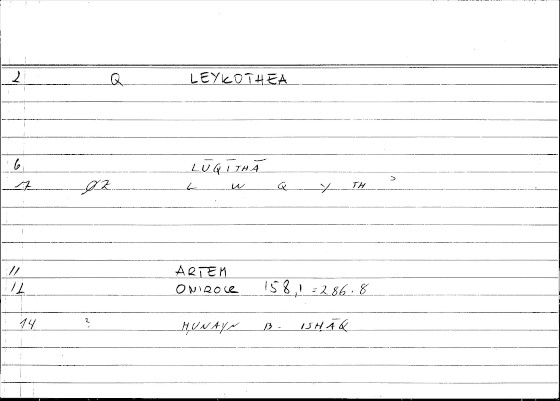 2 Q LEYKOTHEA
6 LŪQĪTHĀ
17 ØZ L W Q Y TH ʾ
11 ARTEM
12 ONIROCR 158,1 = 286.8
14 ? ḤUNAYN B. ISḤĀQ